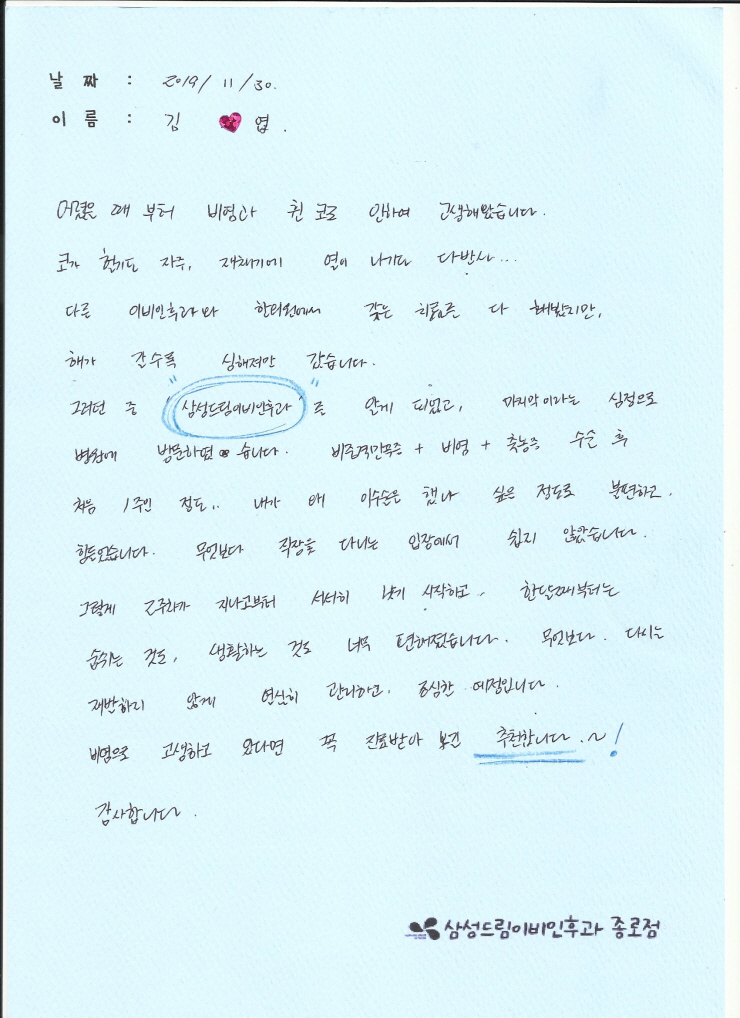 날 짜 : 2019/11/30.
이 름 : 김 엽.
어렸을 때 부터 비염과 휜 코로 인하여 고생해왔습니다.
코가 헐기도 자주, 재채기에 열이 나기다 다반사...
다른 이비인후과와 한의원에서 갖은 치료를 다 해봤지만,
해가 갈수록 심해져만 갔습니다.
그러던 중 "삼성드림이비인후과"를 알게 되었고, 마지막이라는 심정으로
병원에 방문하였습니다. 비중격만곡증 + 비염 + 축농증 수술 후
처음 1주일 정도.. 내가 왜 이수술은 했나 싶은 정도로 불편하고,
힘들었습니다. 무엇보다 직장을 다니는 입장에서 쉽지 않았습니다.
그렇게 2주차가 지나고부터 서서히 낫기 시작하고, 한달째부터는
숨쉬는 것도, 생활하는 것도 너무 편해졌습니다. 무엇보다. 다시는
재발하지 않게 열심히 관리하고. 조심할 예정입니다.
비염으로 고생하고 있다면 꼭 진료받아 보길 추천합니다.~!
감사합니다.
삼성드림이비인후과 종로점